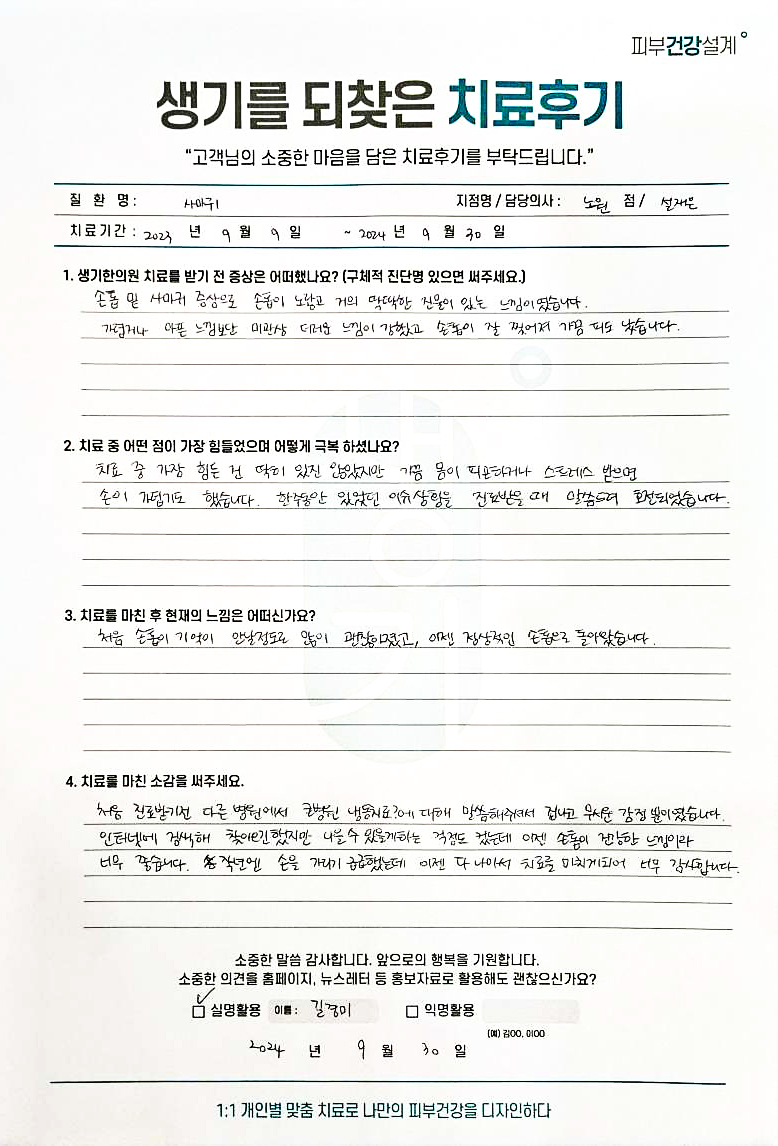 피부건강설계
생기를 되찾은 치료후기
“고객님의 소중한 마음을 담은 치료후기를 부탁드립니다.”
질 환 명 : 사마귀 지점명 / 담당의사 : 노원 점 / 설재은
치료기간 : 2023 년 9 월 9 일 ~ 2024 년 9 월 30 일
1. 생기한의원 치료를 받기 전 증상은 어떠했나요? (구체적 진단명 있으면 써주세요.)
손톱 밑 사마귀 증상으로 손톱이 노랗고 거의 딱딱한 진물이 있는 느낌이였습니다.
가렵거나 아픈 느낌보단 미관상 더러운 느낌이 강했고 손톱이 잘 찢어져 가끔 피도 났습니다.
2. 치료 중 어떤 점이 가장 힘들었으며 어떻게 극복 하셨나요?
치료 중 가장 힘든 건 딱히 있진 않았지만 가끔 몸이 피곤하거나 스트레스 받으면
손이 가렵기도 했습니다. 한주동안 있었던 이슈상황을 진료받을 때 말씀드려 호전되었습니다.
3. 치료를 마친 후 현재의 느낌은 어떠신가요?
처음 손톱이 기억이 안날정도로 많이 괜찮아졌고, 이젠 정상적인 손톱으로 돌아왔습니다.
4. 치료를 마친 소감을 써주세요.
처음 진료받기전 다른 병원에서 큰병원 냉동치료?에 대해 말씀해주셔서 겁나고 무서운 감정 뿐이였습니다.
인터넷에 검색해 찾아오긴했지만 나을수 있을까하는 걱정도 컸는데 이젠 손톱이 건강한 느낌이라
너무 좋습니다. 작년엔 손을 가리기 급급했는데 이젠 다 나아서 치료를 마치게되어 너무 감사합니다.
소중한 말씀 감사합니다. 앞으로의 행복을 기원합니다.
소중한 의견을 홈페이지, 뉴스레터 등 홍보자료로 활용해도 괜찮으신가요?
실명활용 이름 : 길경미 익명활용
(예) 김OO, 이OO
2024 년 9 월 30 일
1:1 개인별 맞춤 치료로 나만의 피부건강을 디자인하다